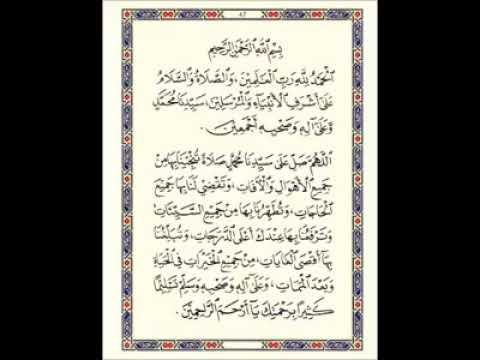 ٨٢
بِسْمِ اللهِ الرَّحْمٰنِ الرَّحِيْمِ
اَلْحَمْدُ لِلّٰهِ رَبِّ الْعَالَمِيْنَ، وَالصَّلَاةُ وَالسَّلَامُ
عَلَى أَشْرَفِ الْأَنْبِيَاءِ وَالْمُرْسَلِيْنَ، سَيِّدِنَا مُحَمَّدٍ
وَعَلَى آلِهِ وَصَحْبِهِ أَجْمَعِيْنَ.
اَللّٰهُمَّ صَلِّ عَلَى سَيِّدِنَا مُحَمَّدٍ صَلَاةً تُنْجِيْنَا بِهَا مِنْ
جَمِيْعِ الْأَهْوَالِ وَالْآفَاتِ، وَتَقْضِيْ لَنَا بِهَا جَمِيْعَ
الْحَاجَاتِ، وَتُطَهِّرُنَا بِهَا مِنْ جَمِيْعِ السَّيِّئَاتِ
وَتَرْفَعُنَا بِهَا عِنْدَكَ أَعْلَى الدَّرَجَاتِ، وَتُبَلِّغُنَا
بِهَا أَقْصَى الْغَايَاتِ، مِنْ جَمِيْعِ الْخَيْرَاتِ فِي الْحَيَاةِ
وَبَعْدَ الْمَمَاتِ، وَعَلَى آلِهِ وَصَحْبِهِ وَسَلِّمْ تَسْلِيْمًا
كَثِيْرًا بِرَحْمَتِكَ يَا أَرْحَمَ الرَّاحِمِيْنَ.